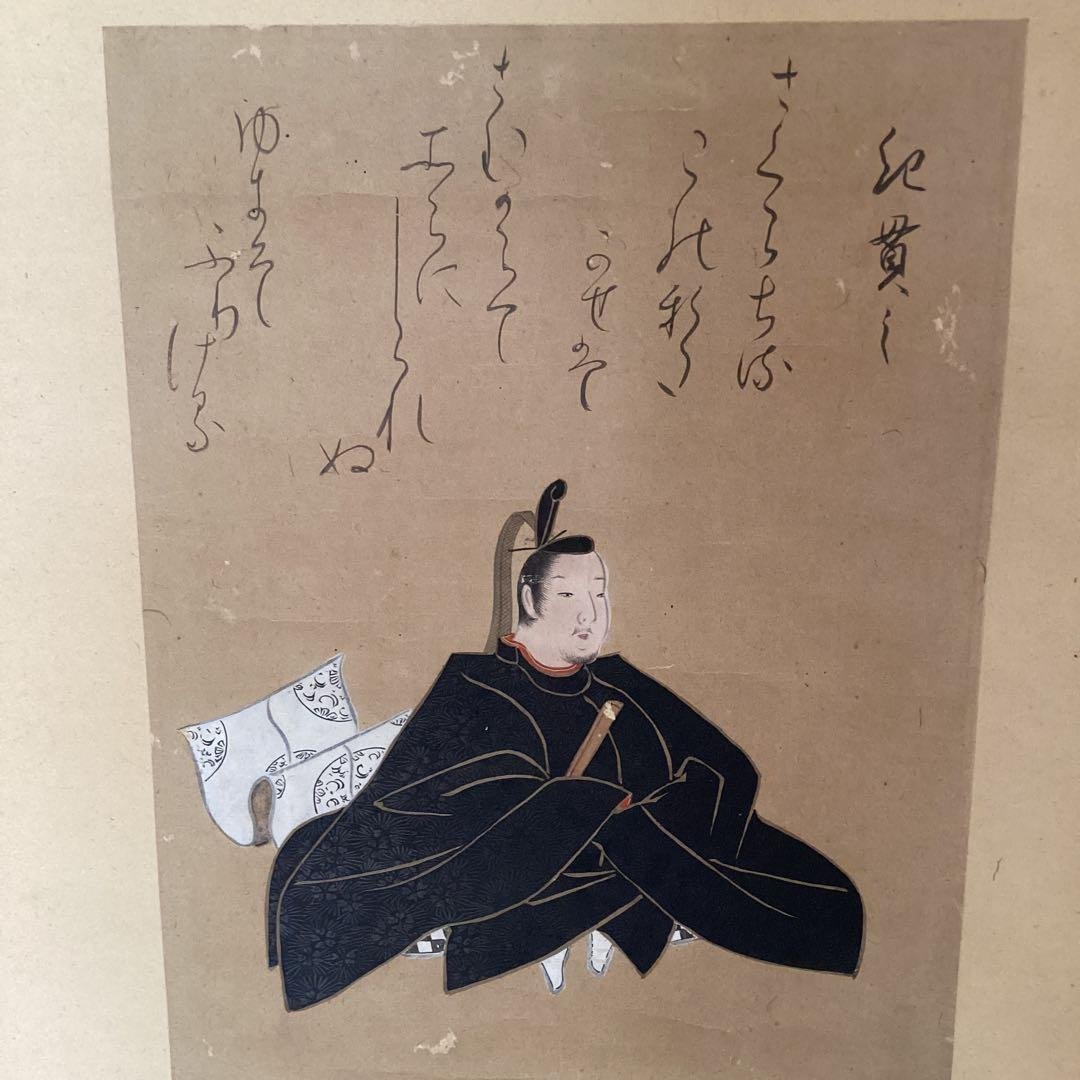 紀貫之
さくらちる
このした
かせは
さむからて
そらに
しられ
ぬ
ゆきそ
ふりける